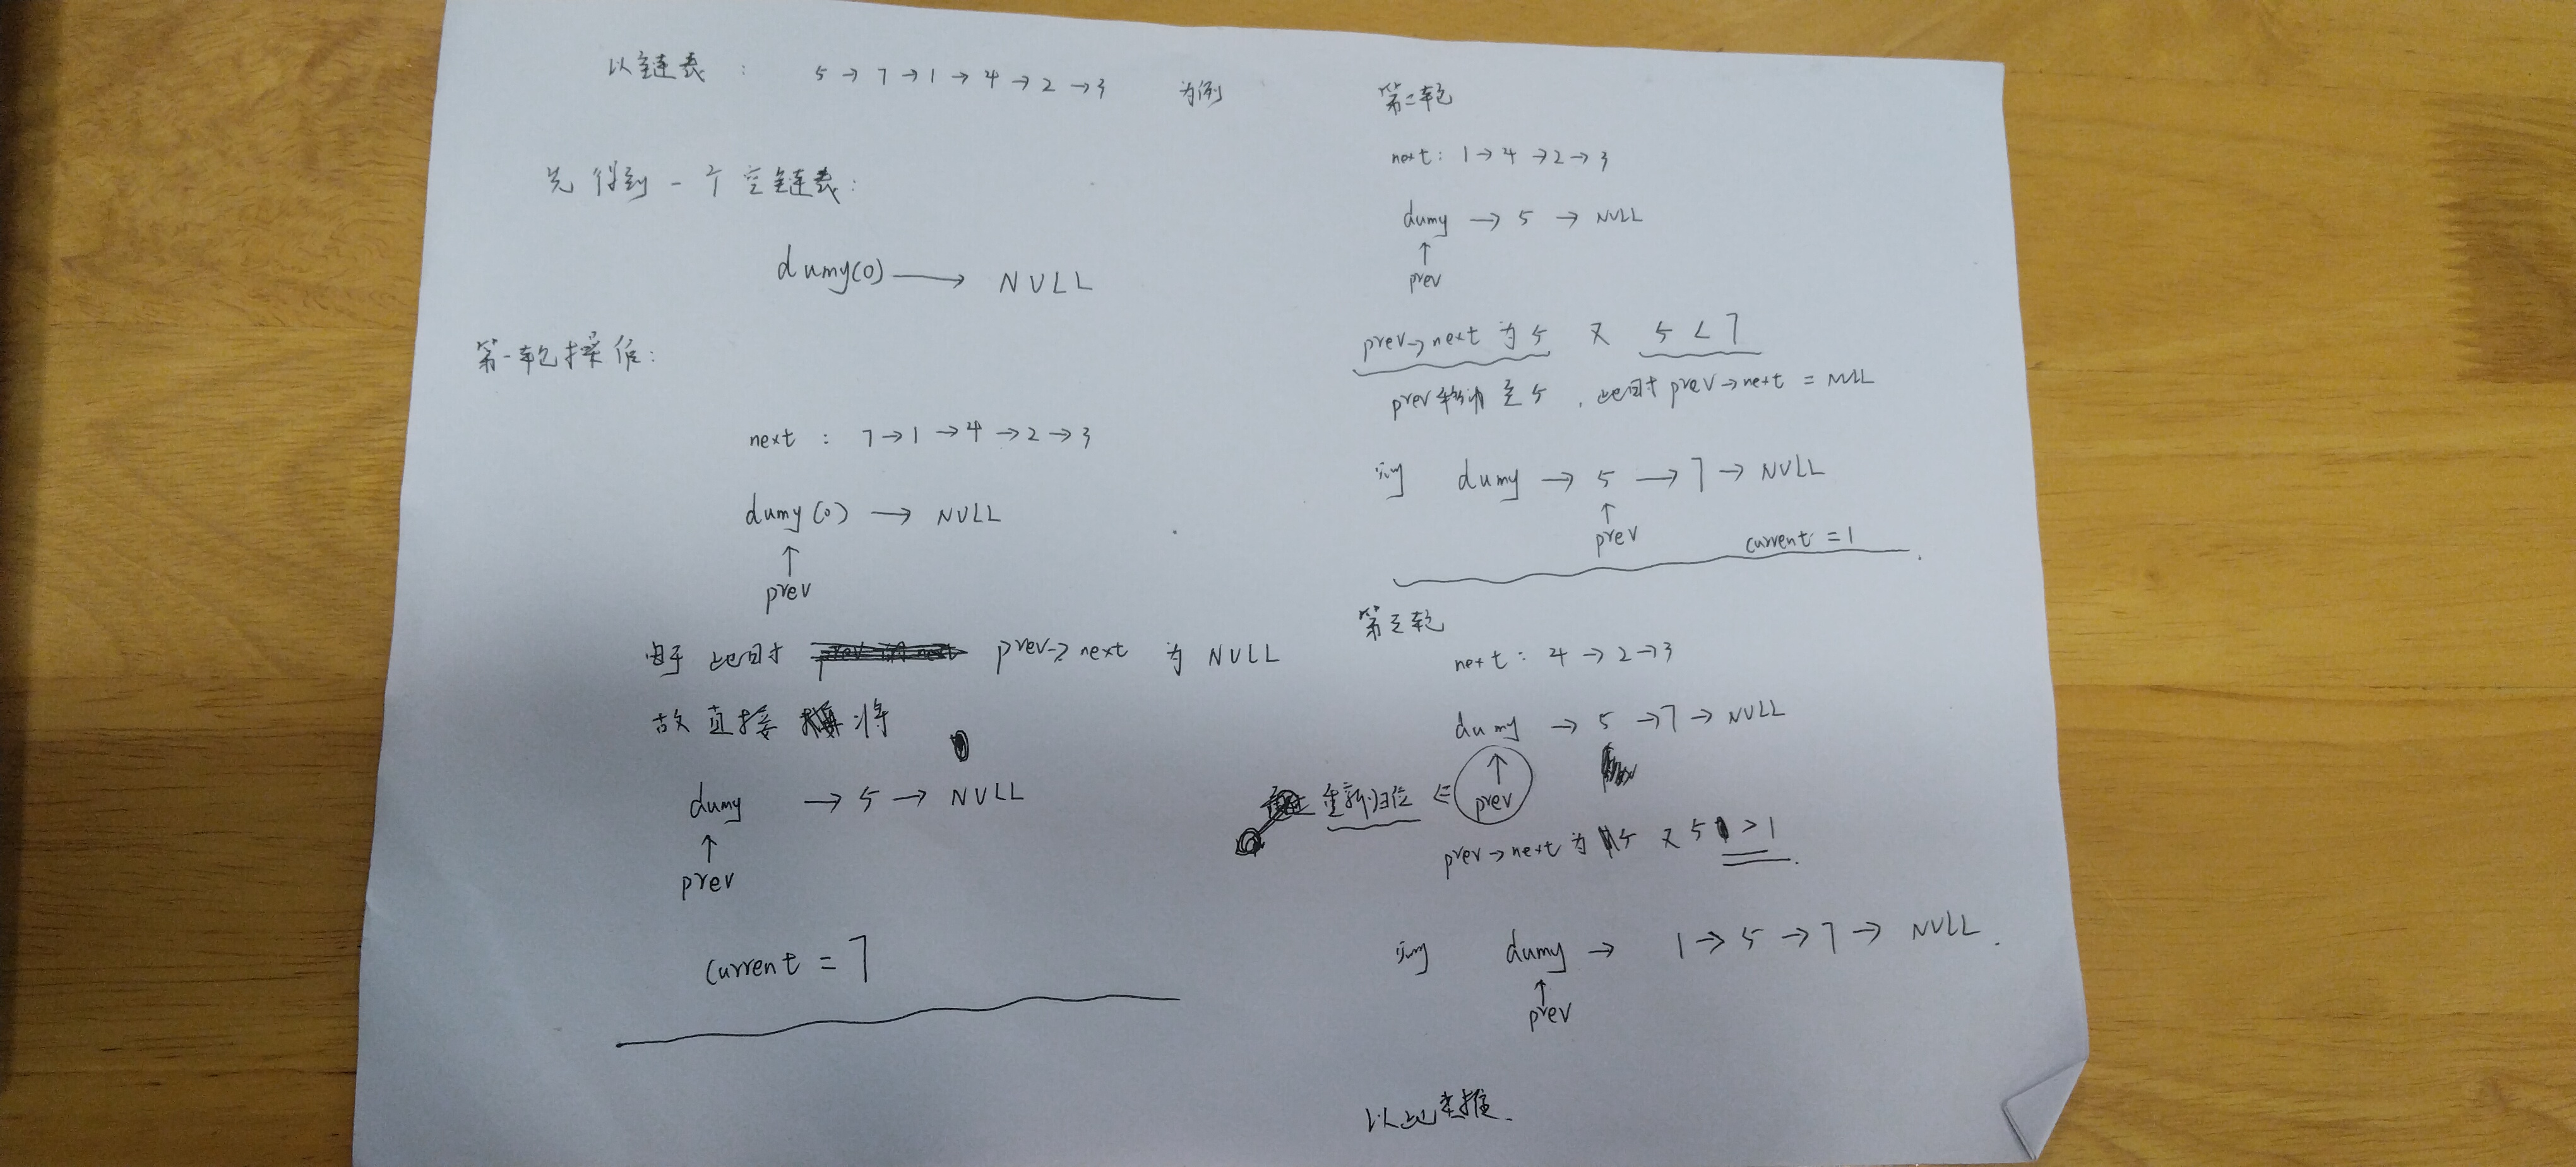 以链表 : 5 → 7 → 1 → 4 → 2 → 3 为例
先得到一个空链表:
dumy(0) → NULL
第一轮操作:
next : 7 → 1 → 4 → 2 → 3
dumy(0) → NULL
↑
prev
由于此时 prev->next 为 NULL
故直接将
dumy → 5 → NULL
↑
prev
current = 7
第二轮
next: 1 → 4 → 2 → 3
dumy → 5 → NULL
↑
prev
prev->next 为 5 又 5 < 7
prev移动至5 , 此时 prev->next = NULL
则 dumy → 5 → 7 → NULL
↑
prev
current = 1
第三轮
next: 4 → 2 → 3
dumy → 5 → 7 → NULL
↑
重新归位 ⇐ prev
prev->next 为 5 又 5 > 1
则 dumy → 1 → 5 → 7 → NULL.
↑
prev
以此类推.